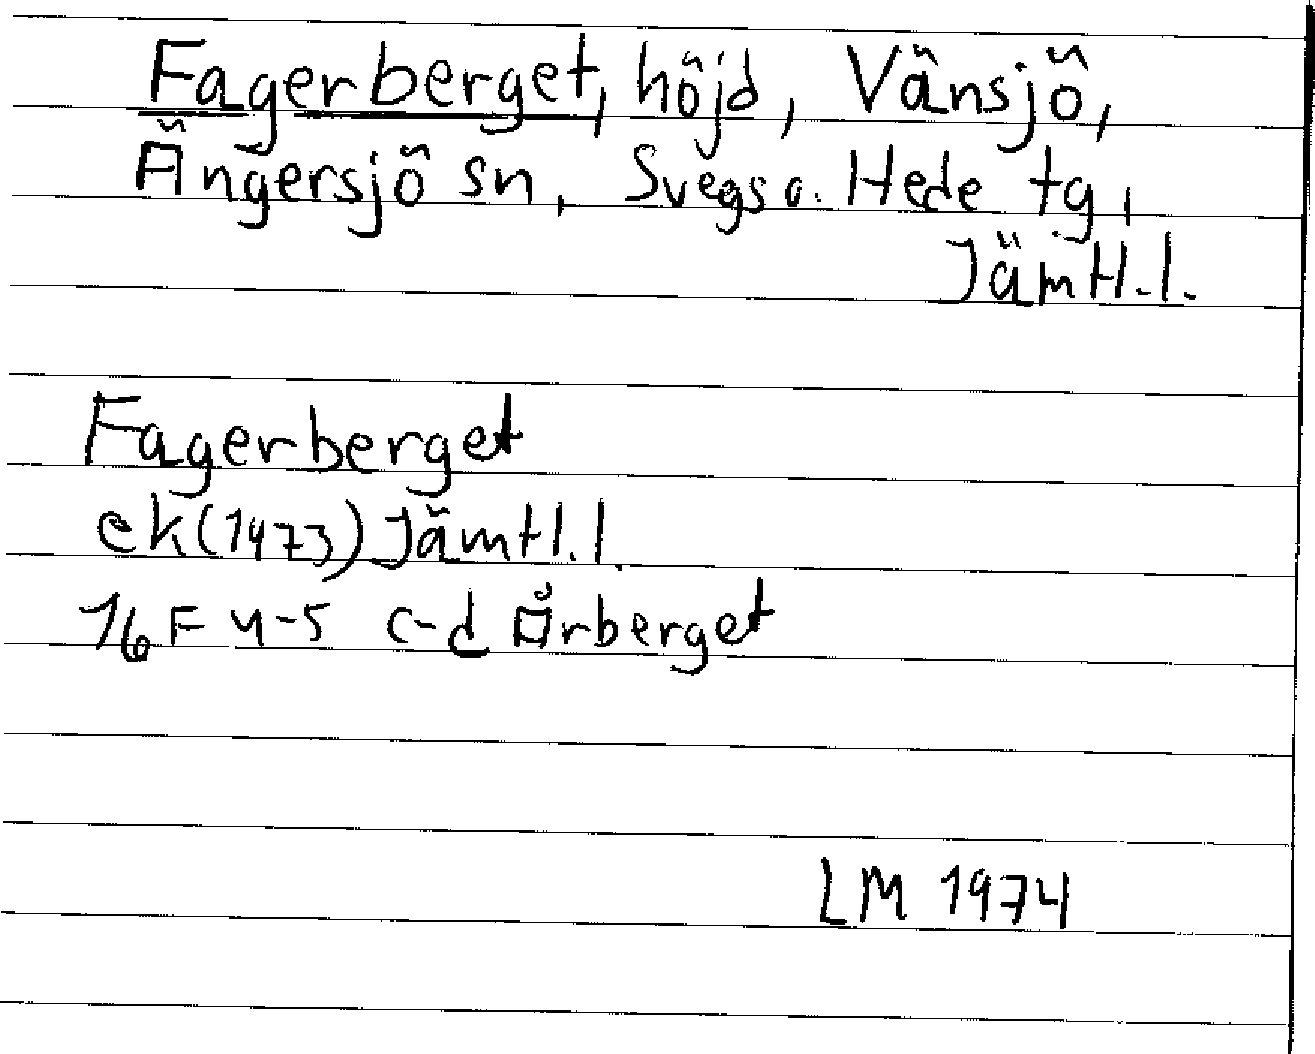 Fagerberget, höjd, Vänsjö,
Ängersjö sn, Svegs o. Hede tg,
Jämtl.l.
Fagerberget
ek(1973) Jämtl.l.
16F 4-5 c-d Årberget
LM 1974